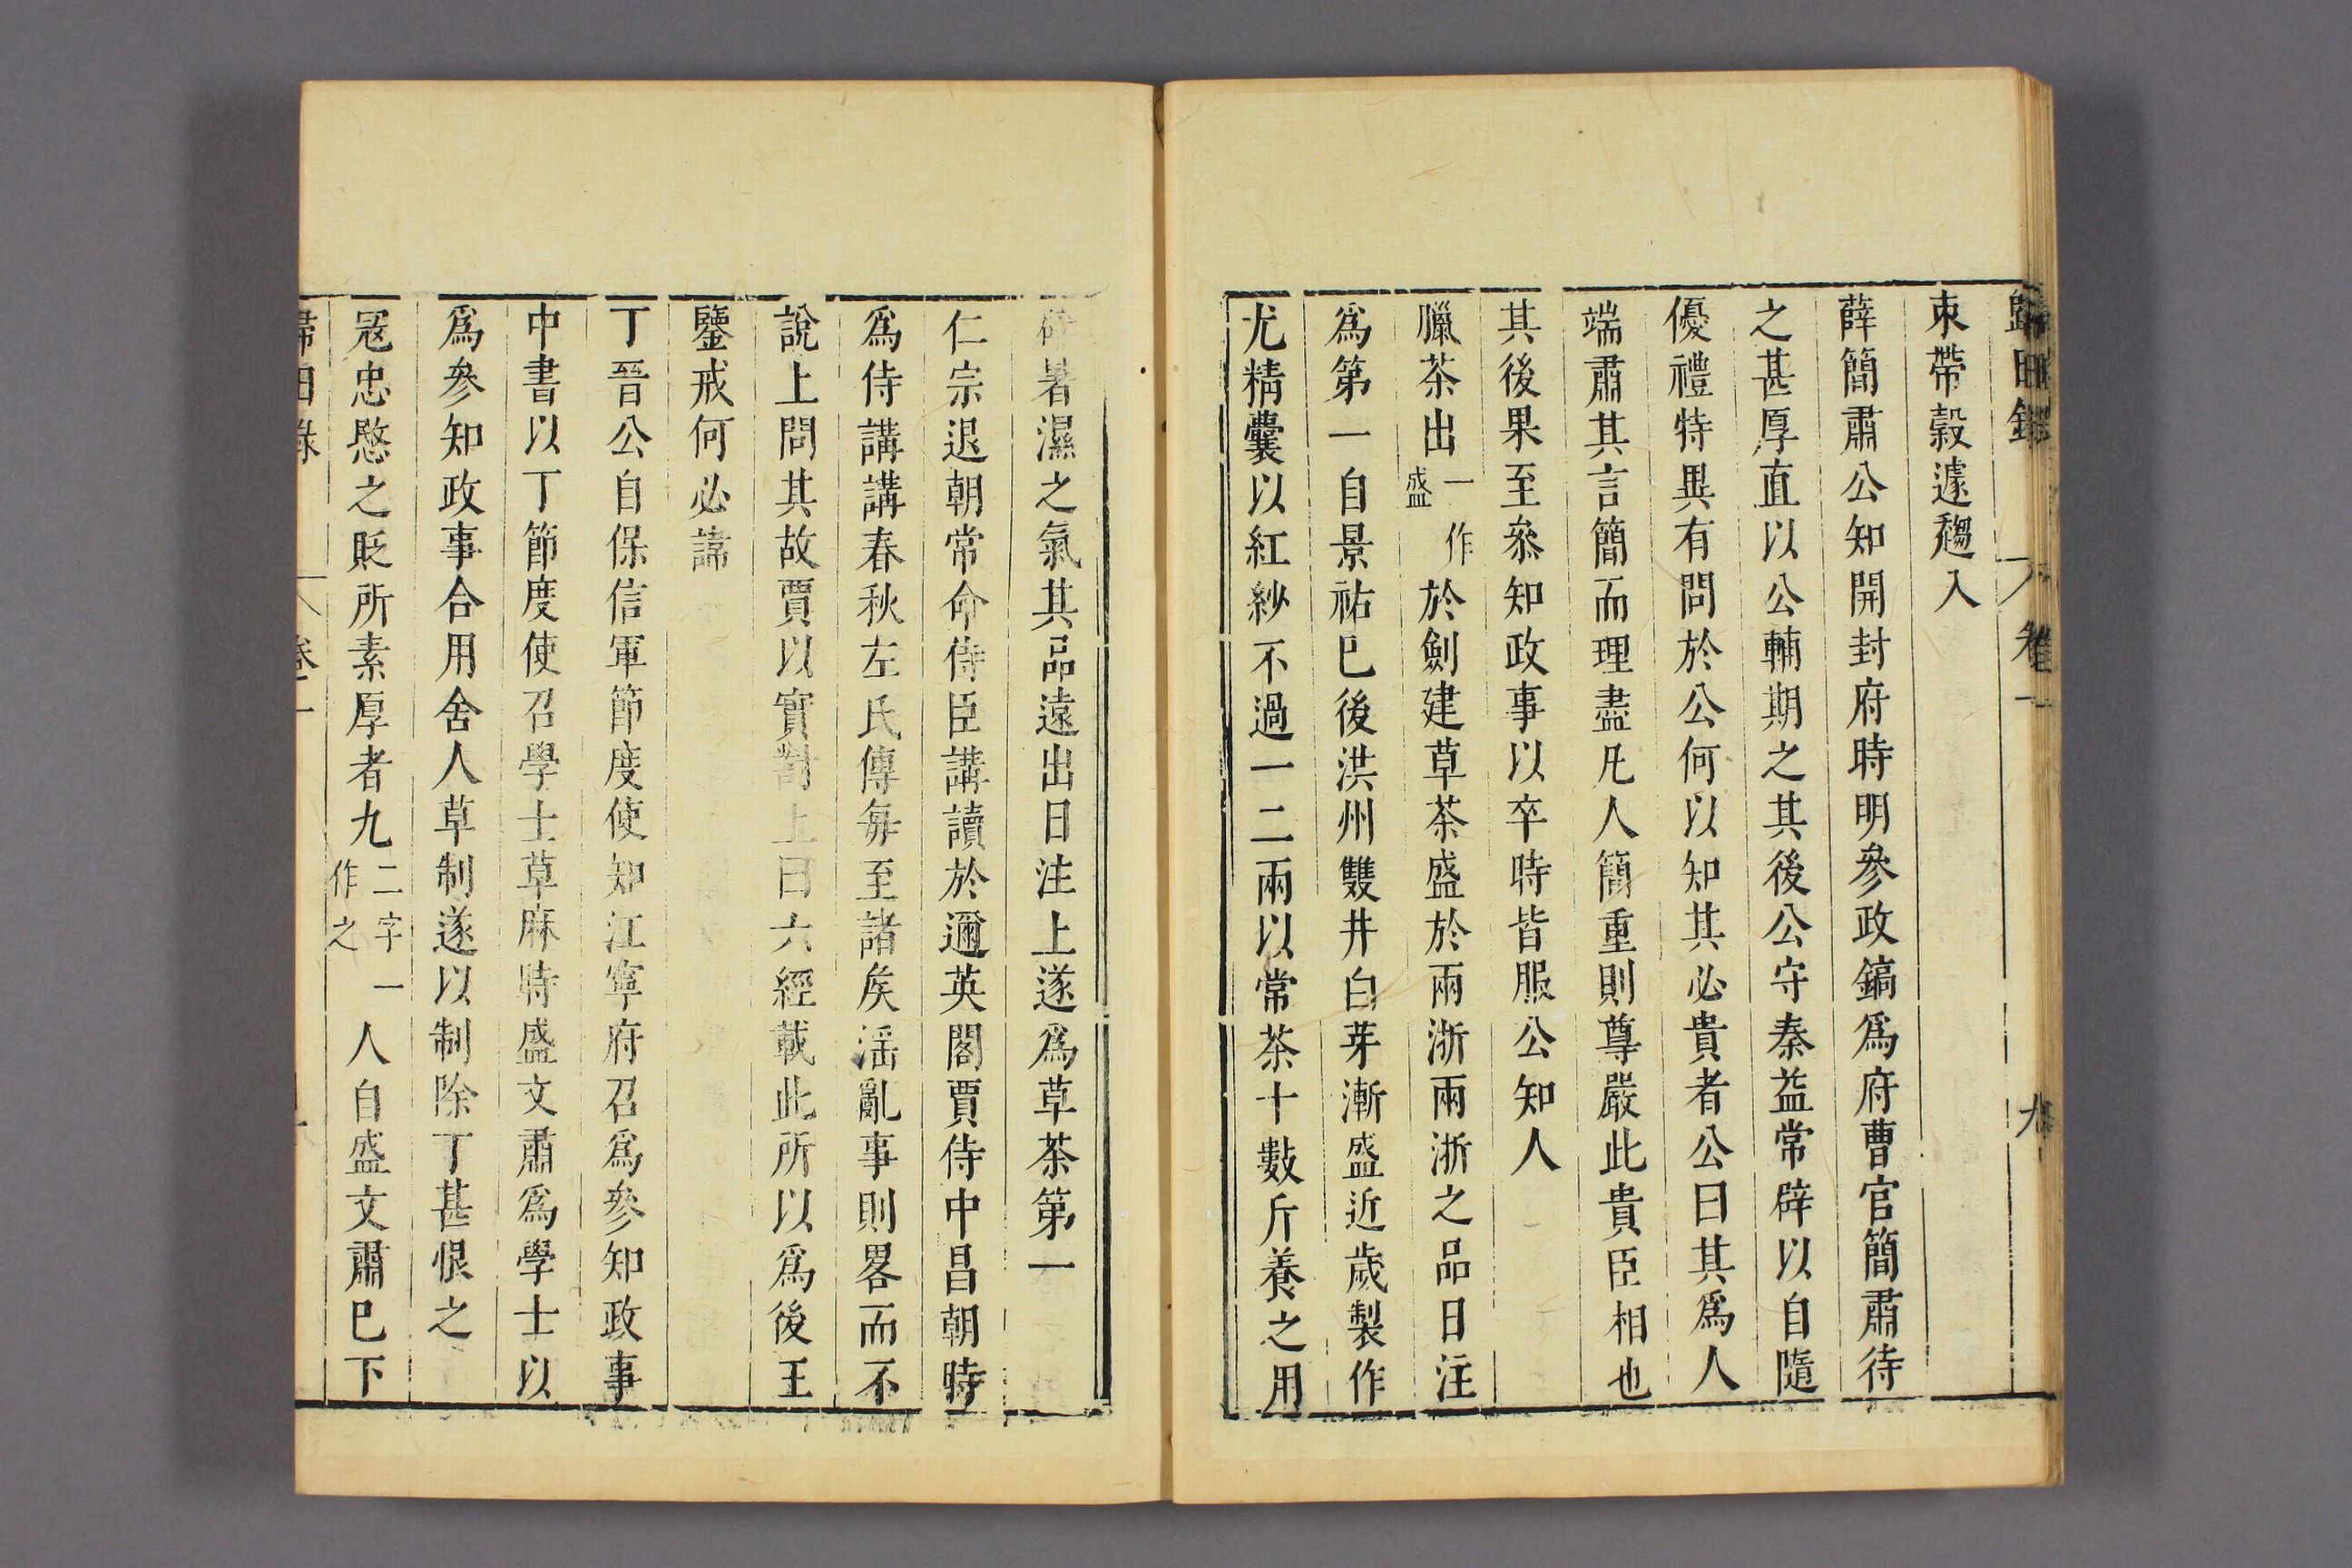 歸田錄 卷一 九
束帶毅遽趨入
薛簡肅公知開封府時明參政鎬爲府曹官簡肅待
之甚厚直以公輔期之其後公守秦益常辟以自隨
優禮特異有問於公何以知其必貴者公曰其爲人
端肅其言簡而理盡凡人簡重則尊嚴此貴臣相也
其後果至叅知政事以卒時皆服公知人
臘茶出一作盛於劍建草茶盛於兩浙兩浙之品日注
爲第一自景祐巳後洪州雙井白芽漸盛近歲製作
尤精囊以紅紗不過一二兩以常茶十數斤養之用
辟暑濕之氣其品遠出日注上遂爲草茶第一
仁宗退朝常命侍臣講讀於邇英閣賈侍中昌朝時
爲侍講講春秋左氏傳每至諸侯淫亂事則畧而不
說上問其故賈以實對上曰六經載此所以爲後王
鑒戒何必諱
丁晉公自保信軍節度使知江寧府召爲參知政事
中書以丁節度使召學士草麻時盛文肅爲學士以
爲參知政事合用舍人草制遂以制除丁甚恨之
冦忠愍之貶所素厚者九二字一作之人自盛文肅巳下
歸田錄 卷一